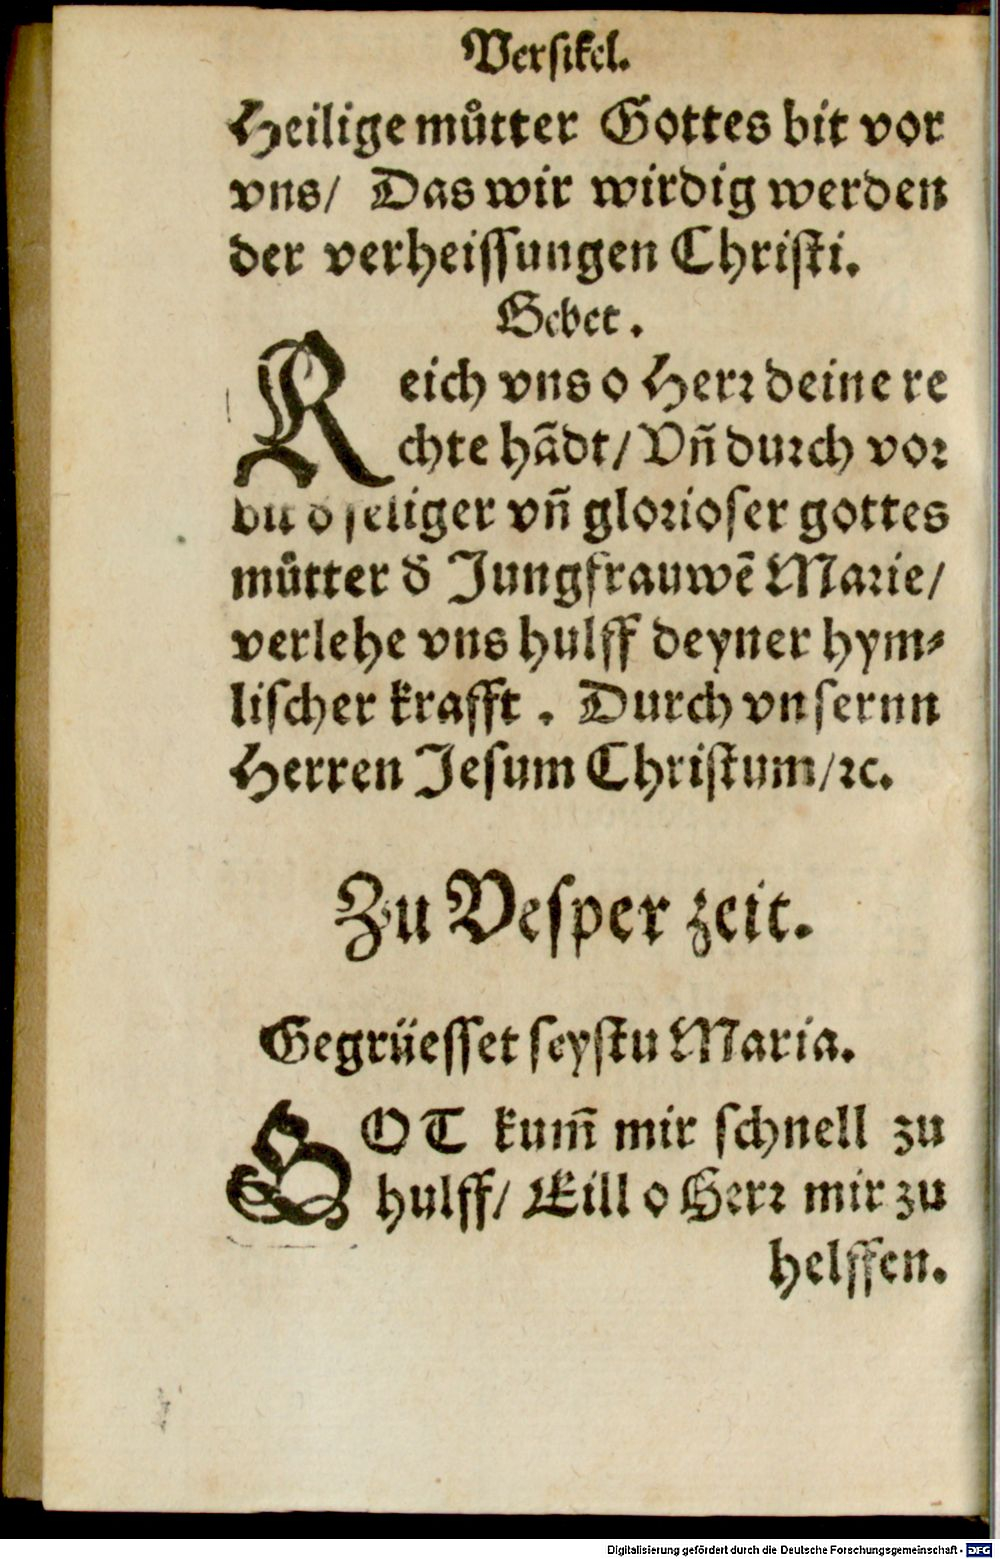 Verſikel.
Heilige muͤtter Gottes bit vor
vns/ Das wir wirdig werden
der verheiſſungen Chriſti.
Gebet.
Reich vns o Herꝛ deine re
chte hãdt/ Vñ durch voꝛ
bit d̄ ſeliger vñ gloꝛioſer gottes
muͤtter d̄ Jungfrauwẽ Maꝛie/
verlehe vns hulff deyner hym⸗
liſcher krafft. Durch vnſernn
Herren Jeſum Chriſtum/ꝛc.
Zu Veſper zeit.
Gegrüeſſet ſeyſtu Maria.
GOT kum̄ mir ſchnell zu
hulff/ Eill o Herꝛ mir zu
helffen.
Digitalisierung gefördert durch die Deutsche Forschungsgemeinschaft - DFG